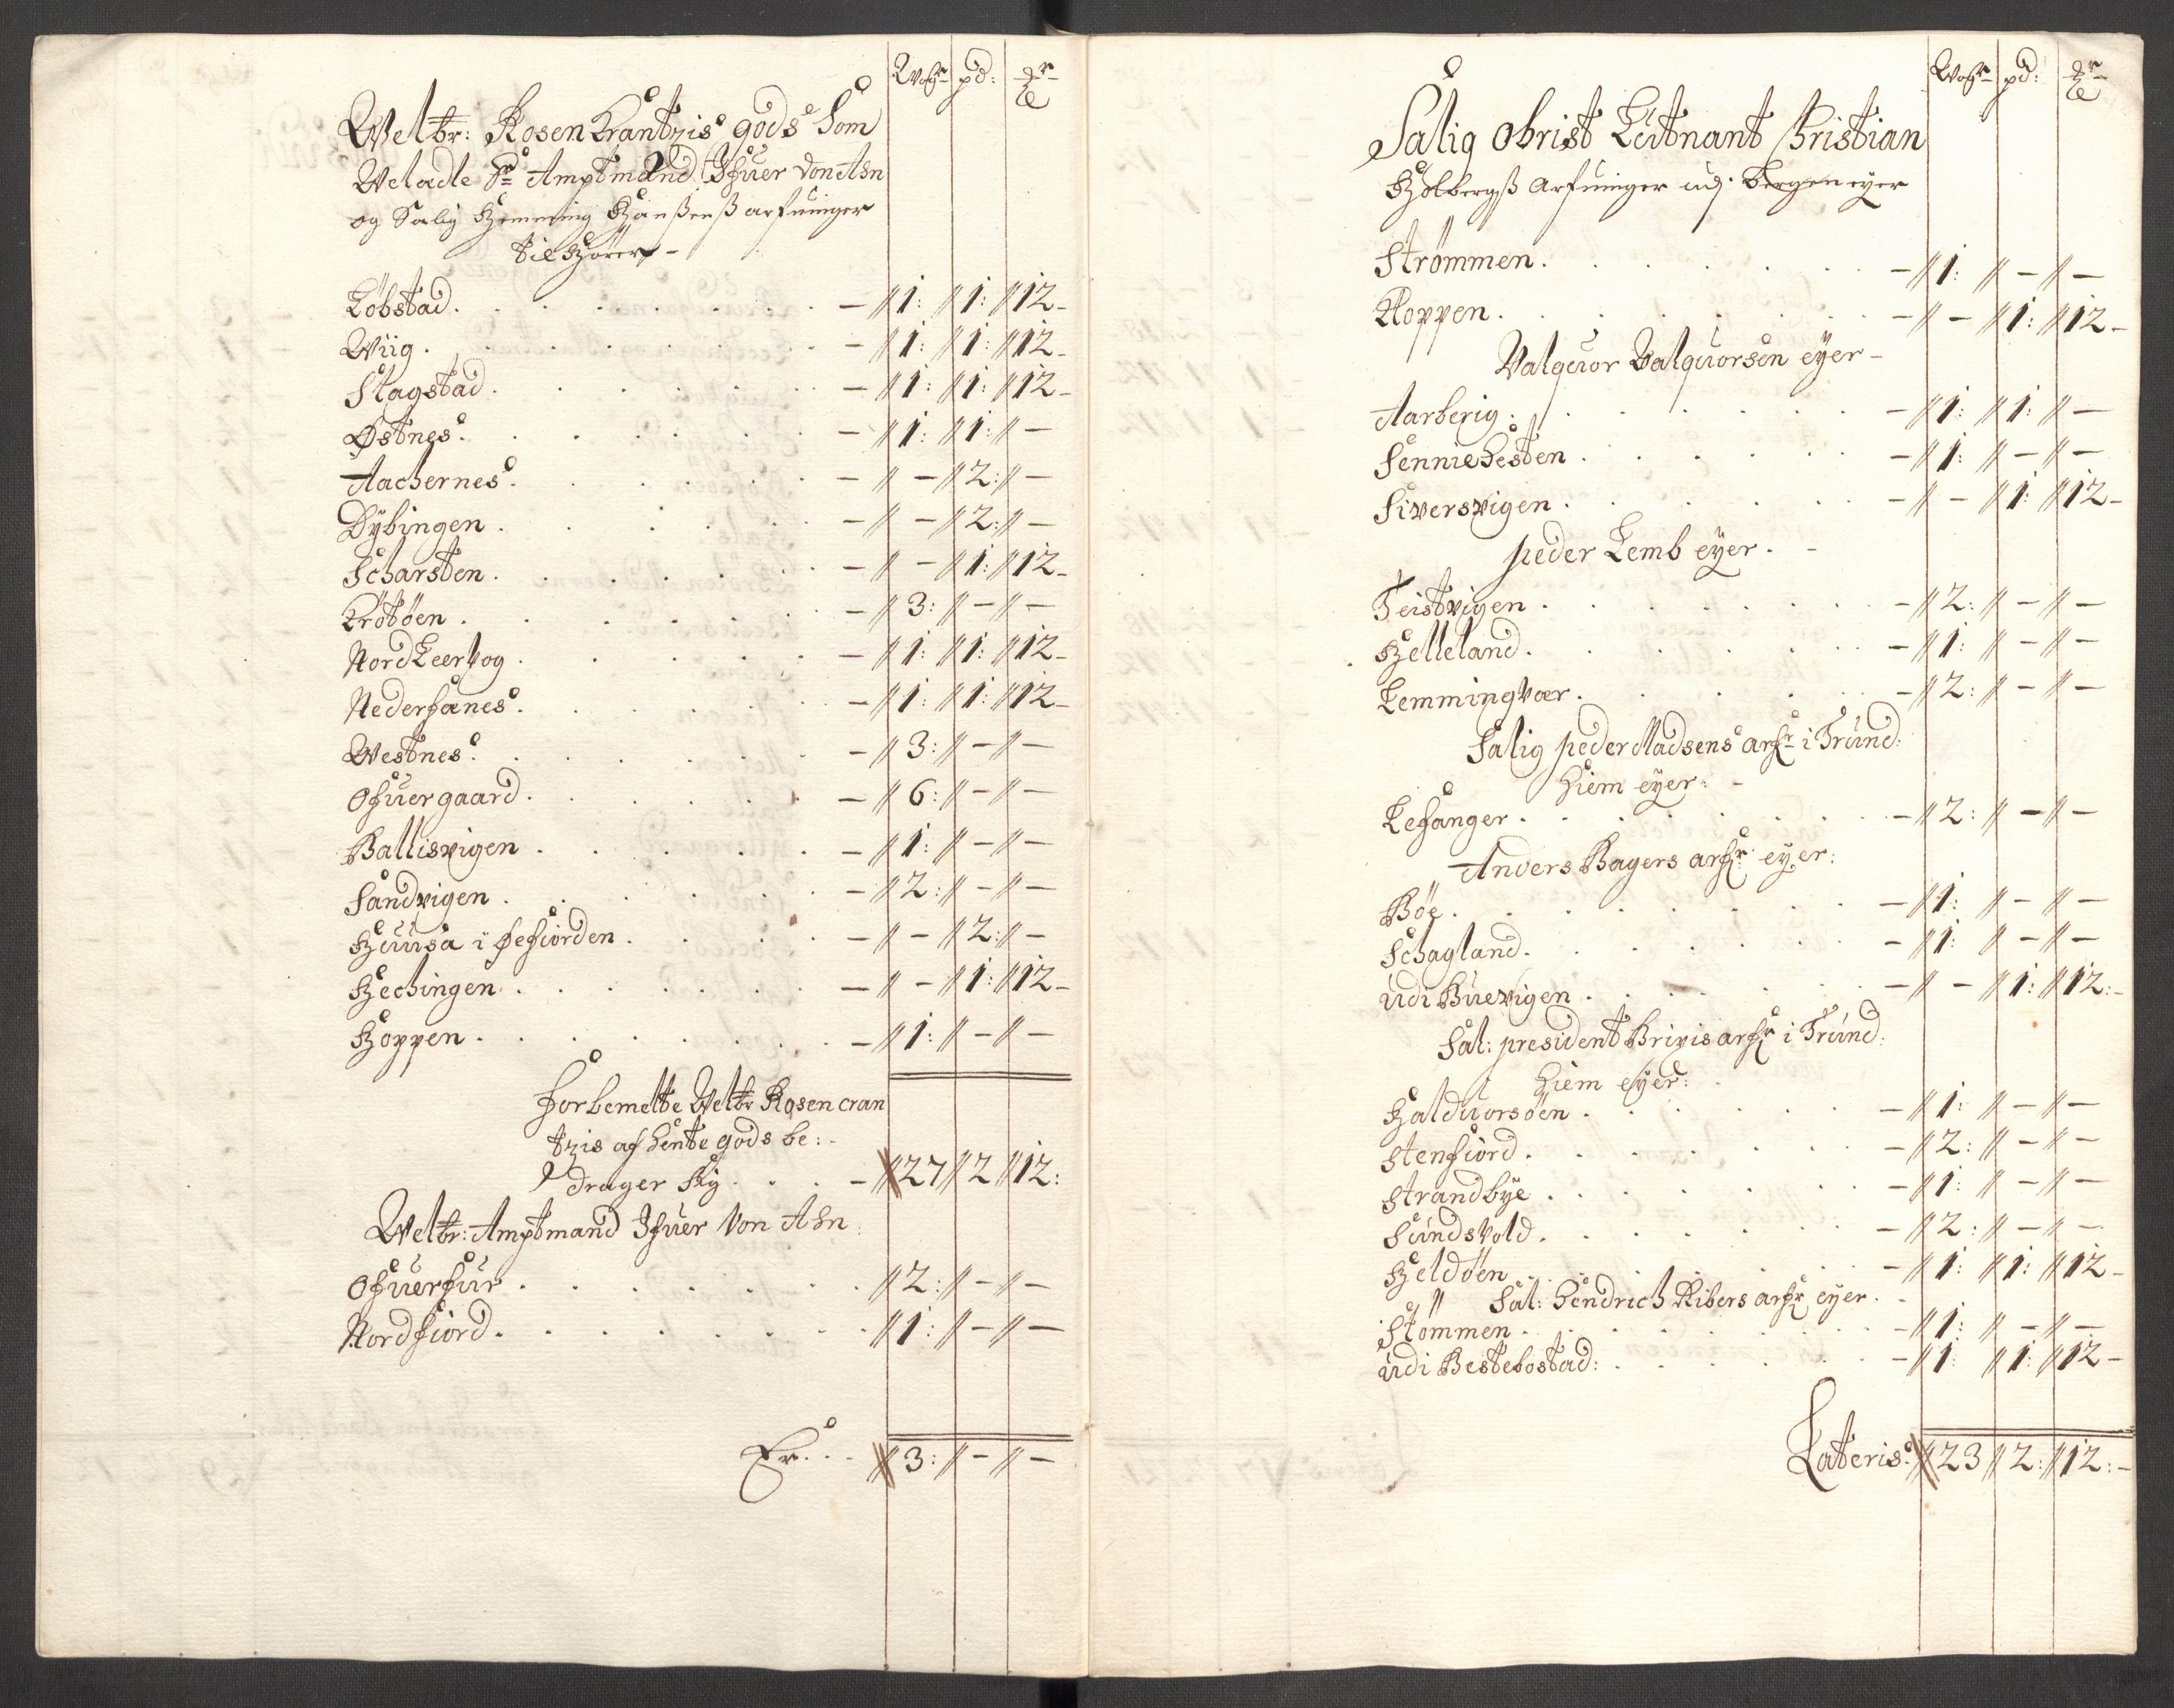 Wogr pd: Mr
Welbr: Rosenkrantzis gods Som
Weladle Sr Amptmand Ifuer Von Ahn
og Salig Hemming Hanßenß arfuinger
tilhører
Löbstad. — // 1: // 1: // 12 -
Wiig. — // 1: // 1: // 12 -
Slagstad. — // 1: // 1: // 12 -
Østnes. — // 1: // 1: // —
Aachernes. — // — // 2: // —
Dÿbingen. — // — // 2: // —
Scharsten. — // — // 1: // 12 -
Krötöen. — // 3: // — // —
Nord Leervog. — // 1: // 1: // 12 -
Nederfanes. — // 1: // 1: // 12 -
Westnes. — // 3: // — // —
Ofuergaard. — // 6: // — // —
Ballisvigen. — // 1: // — // —
Sandvigen. — // 2: // — // —
Huusa i Øefiorden. — // — // 2: // —
Hechingen. — // — // 1: // 12 -
Hoppen. — // 1: // — // —
forbemelte Welbr Rosencran
tzis afhente gods be:
drager sig — // 27 // 2 // 12:
Welbr: Amptmand Ifuer Von Ahn
Ofuerfur. // 2: // — // —
Nordfiord. // 1: // — // —
Er. // 3: // — // —
Wogr pd: Mr
Salig obrist Leutnant Christian
Holbergß Arfuinger udj Bergen eyer
Strømmen. — // 1: // — // —
Kloppen. — // — // 1: // 12 -
Valquor Valquorsen eÿer -
Aarberig. — // 1: // 1: // —
Sennie hesten. — // 1: // — // —
Siversvigen. — // — // 1: // 12 -
peder Lemb eÿer. -
Teistvigen. — // 2: // — // —
Helleland. — // 1: // — // —
Lemmingvær. — // 2: // — // —
Salig peder Madsens arfr i Trund:
hiem eÿer: -
Lefanger. — // 2: // — // —
Anders Bagers arfr eÿer:
Böe. — // 1: // — // —
Schagland. — // 1: // — // —
udi Buevigen. — // — // 1: // 12: -
Sal: president Bripis arfr i Trund:
hiem eÿer:
Halduorsöen. — // 1: // — // —
Stenfiord. — // 2: // — // —
Strandbÿe. — // 1: // — // —
Sundsvold. — // 2: // — // —
Heldöen. — // 1: // 1: // 12 -
Sal: hendrich Ribers arfr eyer.
Stömmen. — // 1: // — // —
udi Bestebostad: — // 1: // 1: // 12 -
Lateris // 23 // 2: // 12: -